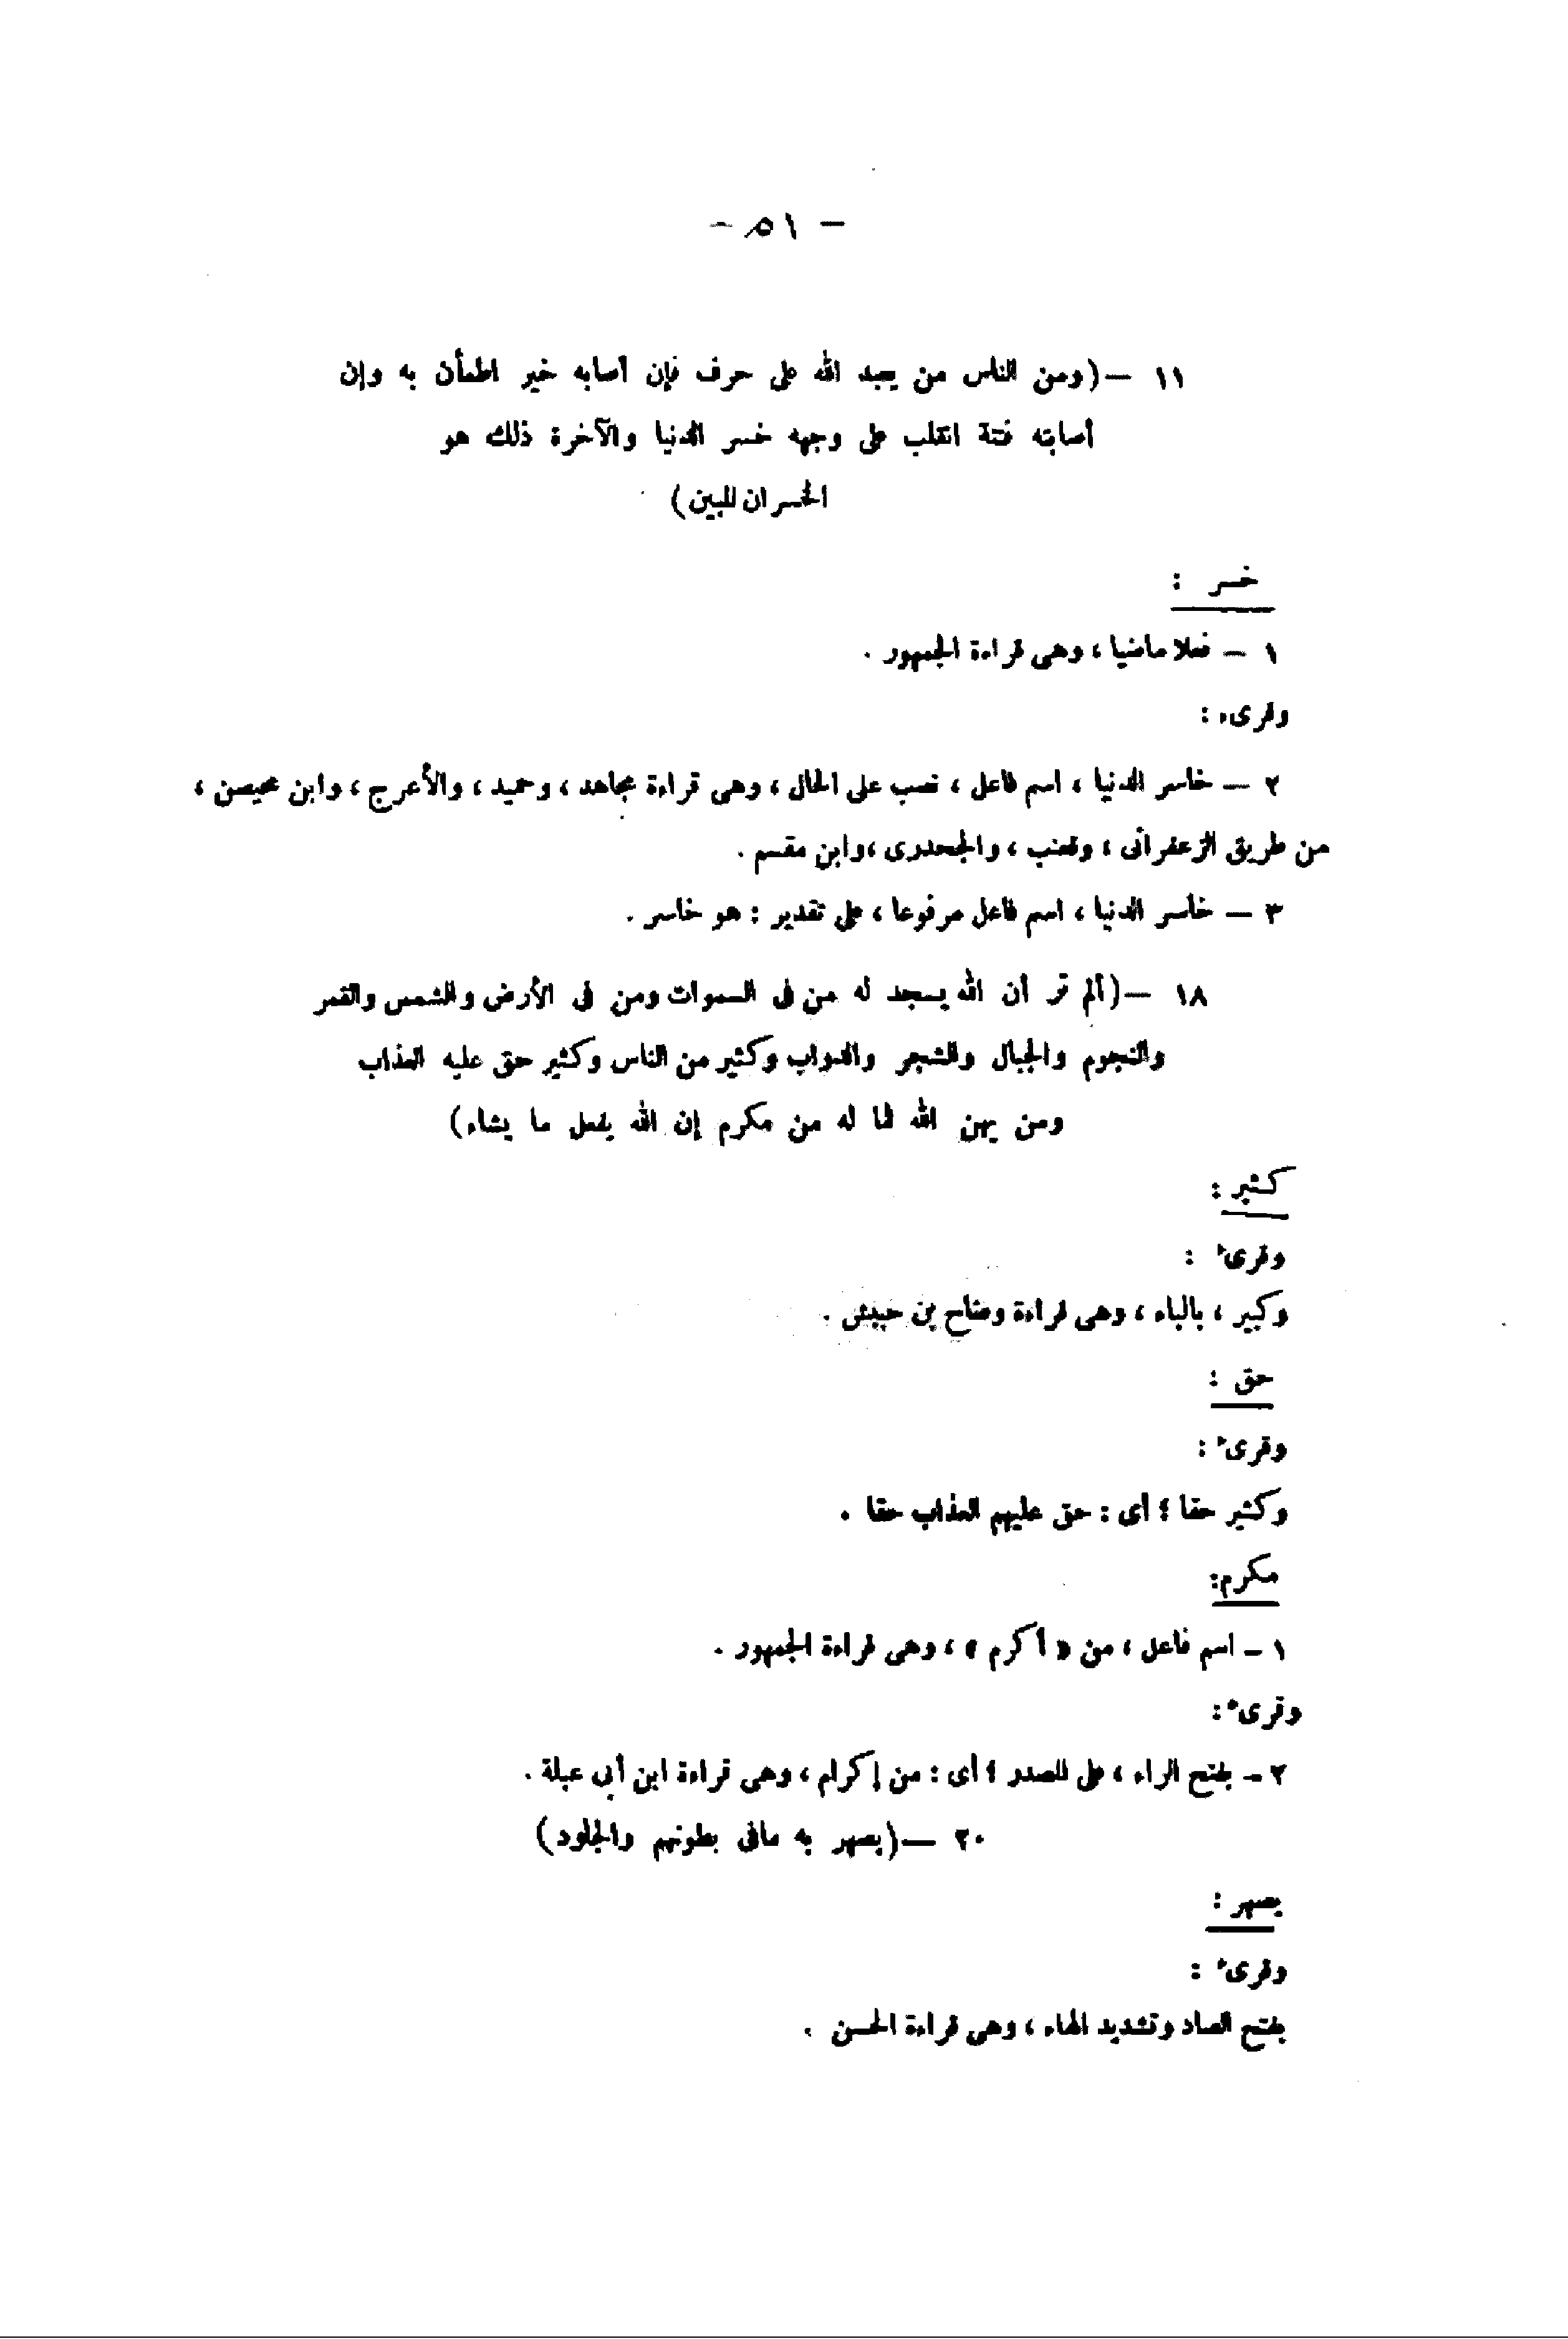 — ٥١ —
١١ — (ومن الناس من يعبد الله على حرف فإن أصابه خير اطمأن به وإن
أصابته فتنة انقلب على وجهه خسر الدنيا والآخرة ذلك هو
الخسران المبين)
خسر :
١ — فعلا ماضيا ، وهى قراءة الجمهور .
وقرىء :
٢ — خاسر الدنيا ، اسم فاعل ، نصب على الحال ، وهى قراءة مجاهد ، وحميد ، والأعرج ، وابن محيصن ،
من طريق الزعفرانى ، وقعنب ، والجحدرى ، وابن مقسم .
٣ — خاسر الدنيا ، اسم فاعل مرفوعا ، على تقدير : هو خاسر .
١٨ — (ألم تر أن الله يسجد له من فى السموات ومن فى الأرض والشمس والقمر
والنجوم والجبال والشجر والدواب وكثير من الناس وكثير حق عليه العذاب
ومن يهن الله فما له من مكرم إن الله يفعل ما يشاء)
كثير :
وقرىء :
وكبير ، بالباء ، وهى قراءة وضاح بن حبيش .
حق :
وقرىء :
وكثير حقا ؛ أى : حق عليهم العذاب حقا .
مكرم:
١ - اسم فاعل ، من « أكرم » ، وهى قراءة الجمهور .
وقرىء :
٢ - بفتح الراء ، على المصدر ؛ أى : من إكرام ، وهى قراءة ابن أبى عبلة .
٢٠ — (يصهر به مافى بطونهم والجلود)
يصهر :
وقرىء :
بفتح الصاد وتشديد الهاء ، وهى قراءة الحسن .